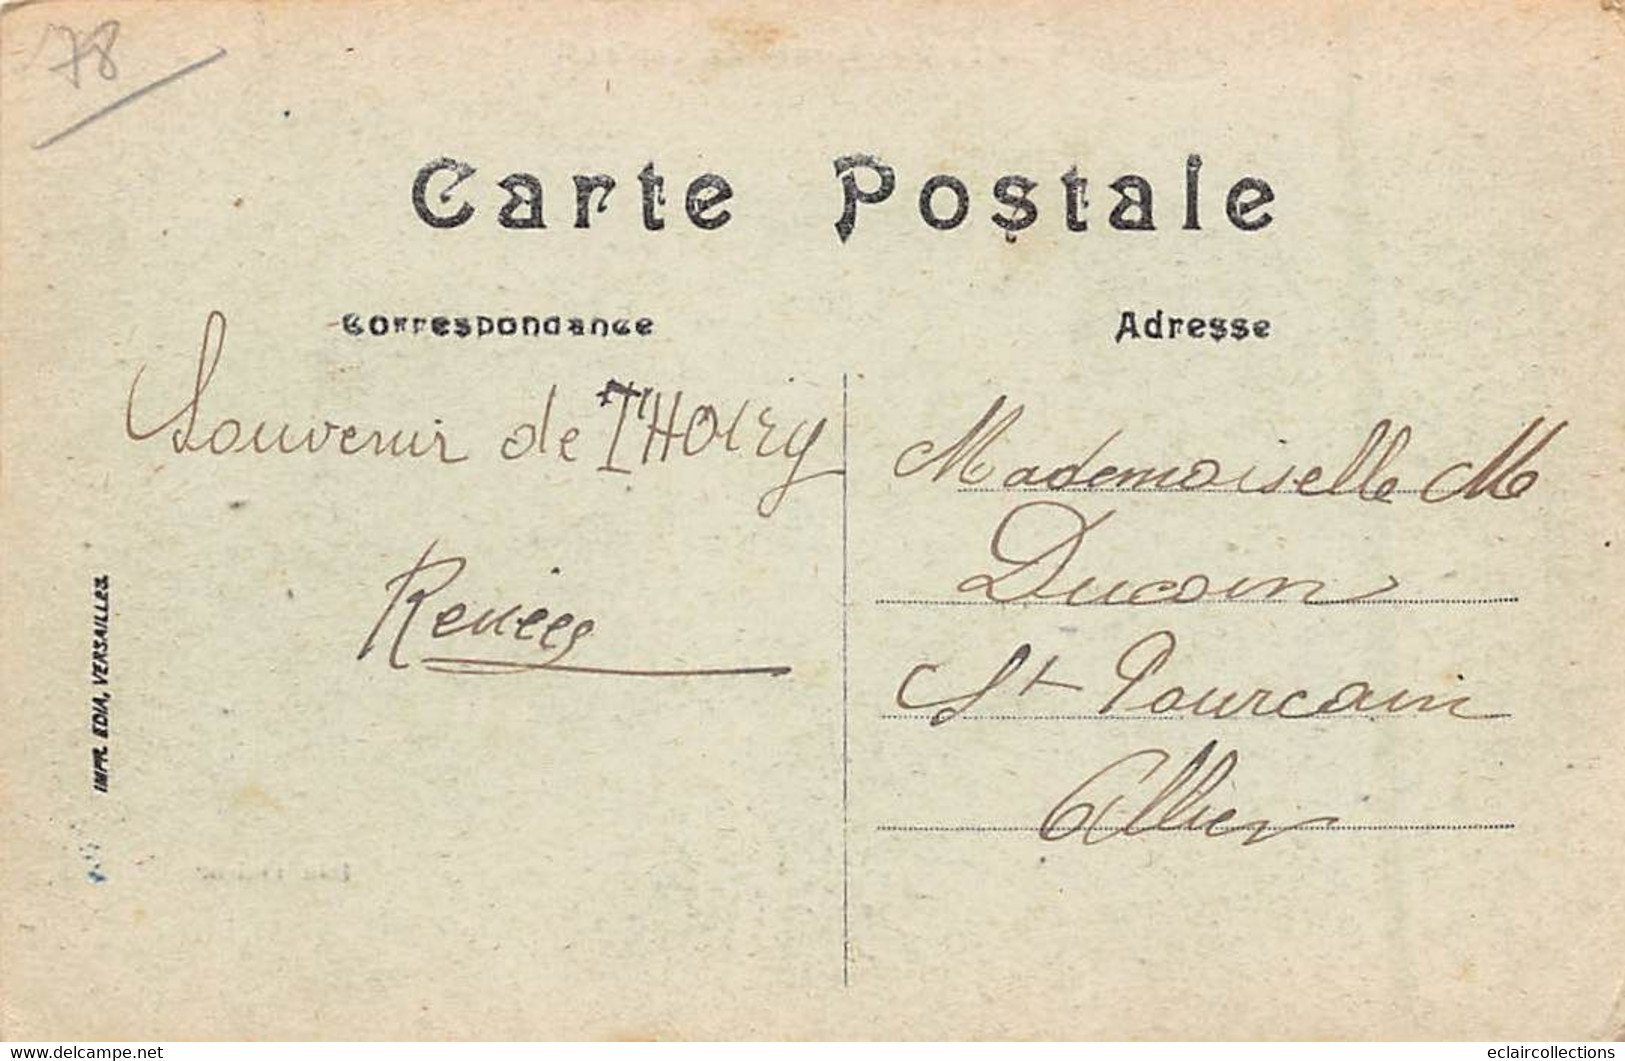 78
Carte Postale
Correspondance
Adresse
Souvenir de THOIRY
Mademoiselle M
Ducoin
St Pourcain
Allier
IMPR. EDIA, VERSAILLES.
www.delcampe.net
eclaircollections